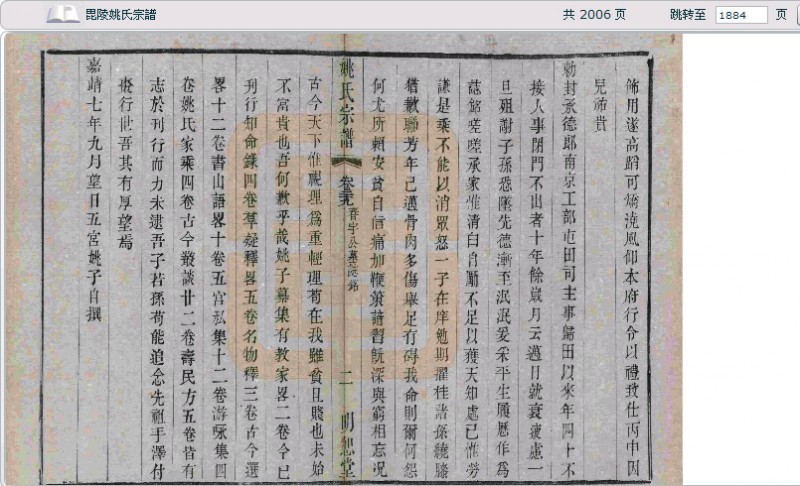 毘陵姚氏宗譜
共 2006 页
跳转至 1884 页
佈用遂高蹈可矯澆風仰本府行令以禮致仕丙申因
兄沛貴
勅封承德郎南京工部屯田司主事歸田以來年四十不
接人事閉門不出者十年餘歲月云邁日就衰疲慮一
旦殂謝子孫恐墜先德漸至泯泯爰采平生履歷作為
誌銘嗟嗟承家惟清白自勵不足以獲天知處己惟勞
謙是秉不能以消眾怒一子在庠勉期擢桂諸孫繞膝
猶歉聯芳年已邁骨肉多傷舉足有礙我命則爾何怨
何尤所賴安貧自信痛加鞭策諳習既深與窮相忘況
姚氏宗譜
卷三九
春宇公墓誌銘
二
明恕堂
古今天下惟視理為重輕理苟在我雖貧且賤也未始
不富貴也吾何歉乎哉姚子纂集有教家畧二卷今已
刊行知命錄四卷蓍疑釋畧五卷名物釋三卷古今選
畧十二卷書山語畧十卷五宮私集十二卷游咏集四
卷姚氏家乘四卷古今叢談廿二卷壽民方五卷皆有
志於刊行而力未逮吾子若孫苟能追念先祖手澤付
梓行世吾其有厚望焉
嘉靖七年九月望日五宮姚子自撰